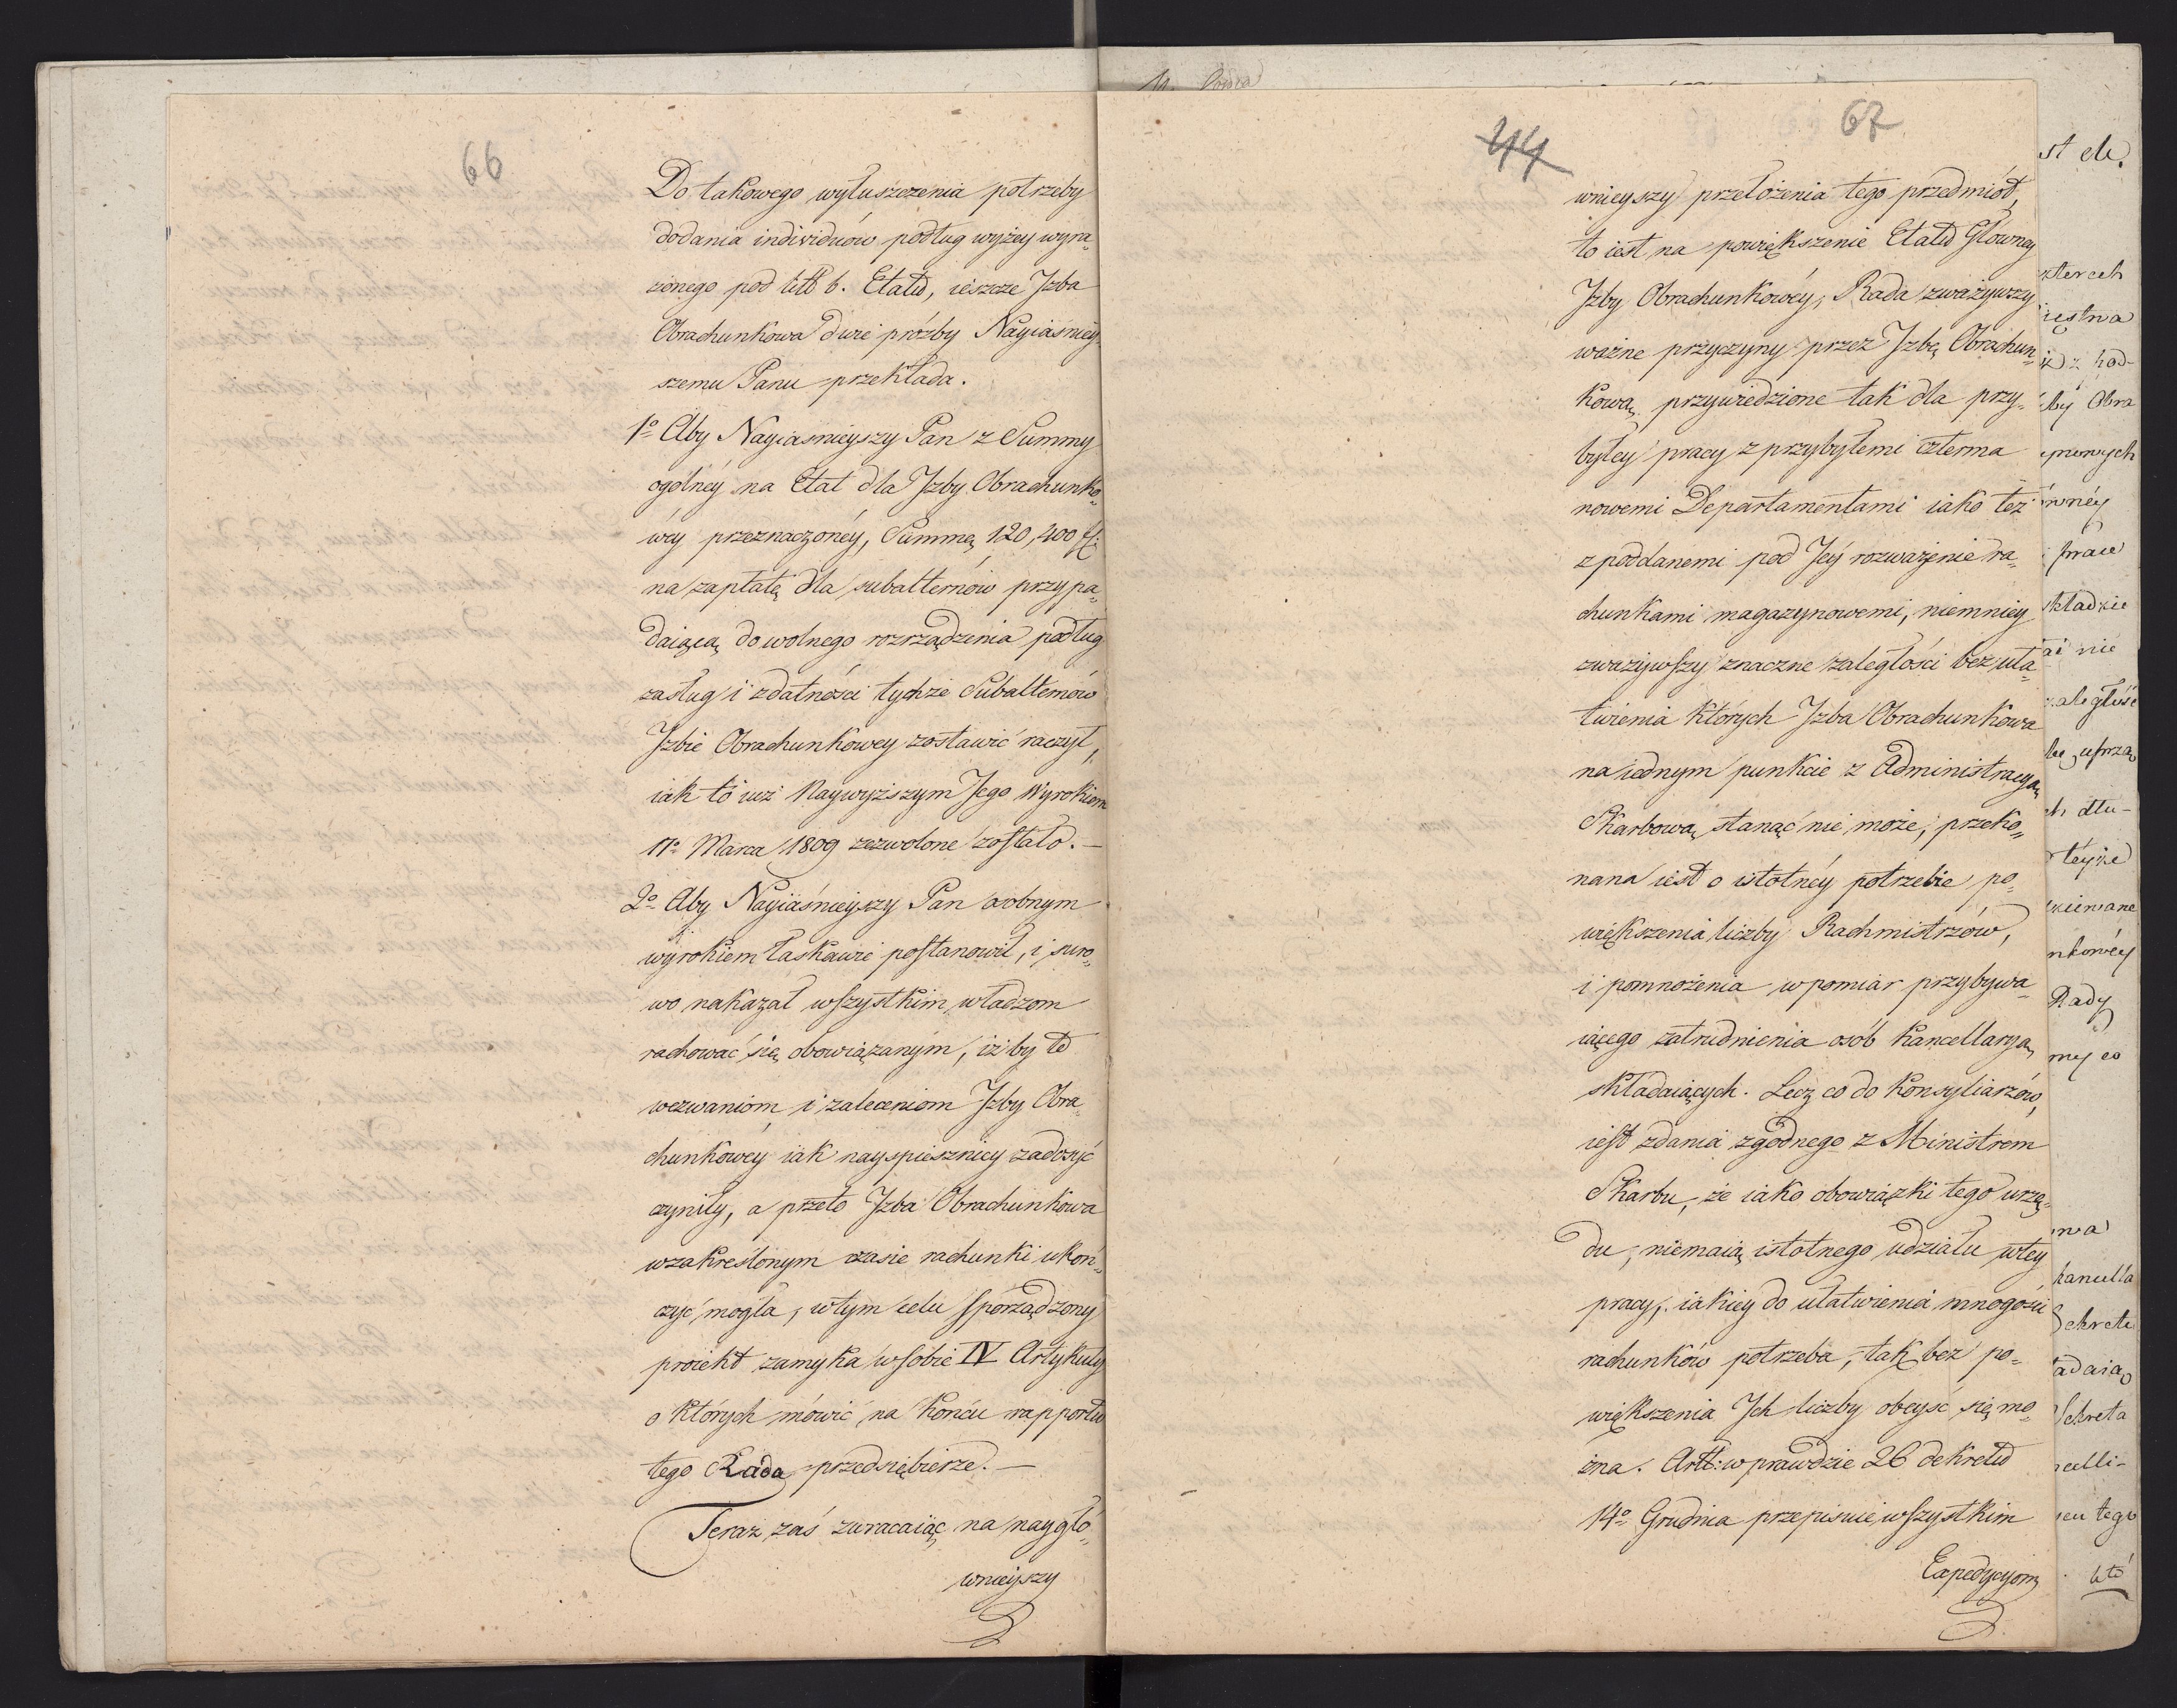 66
Do takowego wyłuszczenia potrzeby
dodania individuów podług wyżey wyra„
żonego pod litt b. Etatu, ieszcze Jzba
Obrachunkowa dwie prózby Nayiaśniey„
szemu Panu przekłada.
1º Aby Nayiaśnieyszy Pan z Summy
ogólnéy na Etat dla Jzby Obrachunko„
wéy przeznaczonéy, Summę 120,400 f.
na zapłatę dla subalternów przypa„
daiącą do wolnego rozrządzenia podług
zasług i zdatności tychże Subalternów
Jzbie Obrachunkowey zostawić raczył,
iak to iuż Naywyższym Jego Wyrokiem
17º Marca 1809 zezwolone zostało. —
2º Aby Nayiaśnieyszy Pan osobnym
wyrokiem łaskawie postanowił, i suro„
wo nakazał wszystkim władzom
rachować się obowiązanym, iżby te
wezwaniom i zaleceniom Jzby Obra„
chunkowéy iak nayspieszniey zadosyć
czyniły, a przeto Jzba Obrachunkowa
w zakreślonym czasie rachunki ukoń„
czyć mogła, w tym celu sporządzony
proiekt zamyka w sobie IV Artykuły
o których mówić na końcu rapportu
tego Rada przedsiębierze. —
Teraz zaś zwracaiąc na naygłó„
wnieyszy
44
67
wnieyszy przełożenia tego przedmiót,
to iest na powiększenie Etatu Główney
Jzby Obrachunkowéy, Rada zważywszy
ważne przyczyny przez Jzbę Obrachun„
kową przywiedzione tak dla przy„
byłey pracy z przybyłemi czterma
nowemi Departamentami iako też
z poddanemi pod Jéy rozważenie ra„
chunkami magazynowemi, niemniey
zważywszy znaczne zaległości bez uła„
twienia których Jzba Obrachunkowa
na iednym punkcie z Administracyą
Skarbową stanąć nie może, przeko„
nana iest o istotnéy potrzebie po„
większenia liczby Rachmistrzów,
i pomnożenia w pomiar przybywa„
iącego zatrudnienia osób Kancellaryą
składaiących. Lecz co do Konsyliarzów,
iest zdania zgodnego z Ministrem
Skarbu, że iako obowiązki tego urzę„
du, niemaią istotnego udziału w tey
pracy, iakiey do ułatwienia mnogości
rachunków potrzeba, tak bez po„
większenia Jch liczby obeyść się mo„
żna. Artt: wprawdzie 26 dekretu
14º Grudnia przepisuie wszystkim
Expedycyom